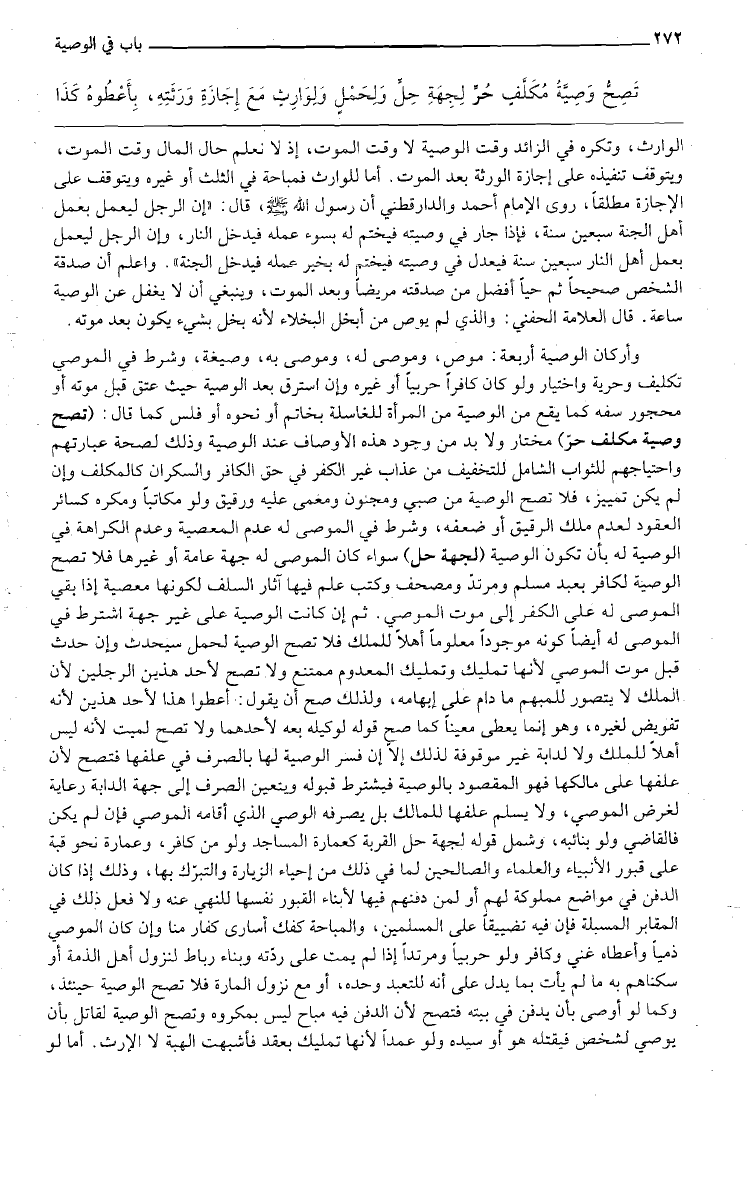 ٢٧٢ باب في الوصية
تَصِحُّ وَصِيَّةُ مُكَلَّفٍ حُرٍّ لِجِهَةِ حِلٍّ وَلِحَمْلٍ وَلِوَارِثٍ مَعَ إِجَازَةِ وَرَثَتِهِ، بِأَعْطُوهُ كَذَا
الوارث، وتكره في الزائد وقت الوصية لا وقت الموت، إذ لا نعلم حال المال وقت الموت،
ويتوقف تنفيذه على إجازة الورثة بعد الموت. أما للوارث فمباحة في الثلث أو غيره ويتوقف على
الإجازة مطلقاً، روى الإمام أحمد والدارقطني أن رسول الله ﷺ، قال: «إن الرجل ليعمل بعمل
أهل الجنة سبعين سنة، فإذا جار في وصيته فيختم له بسوء عمله فيدخل النار، وإن الرجل ليعمل
بعمل أهل النار سبعين سنة فيعدل في وصيته فيختم له بخير عمله فيدخل الجنة». واعلم أن صدقة
الشخص صحيحاً ثم حياً أفضل من صدقته مريضاً وبعد الموت، وينبغي أن لا يغفل عن الوصية
ساعة. قال العلامة الحفني: والذي لم يوص من أبخل البخلاء لأنه بخل بشيء يكون بعد موته.
وأركان الوصية أربعة: موص، وموصى له، وموصى به، وصيغة، وشرط في الموصي
تكليف وحرية واختيار ولو كان كافراً حربياً أو غيره وإن استرق بعد الوصية حيث عتق قبل موته أو
محجور سفه كما يقع من الوصية من المرأة للغاسلة بخاتم أو نحوه أو فلس كما قال: (تصح
وصية مكلف حرّ) مختار ولا بد من وجود هذه الأوصاف عند الوصية وذلك لصحة عبارتهم
واحتياجهم للثواب الشامل للتخفيف من عذاب غير الكفر في حق الكافر والسكران كالمكلف وإن
لم يكن تمييز، فلا تصح الوصية من صبي ومجنون ومغمى عليه ورقيق ولو مكاتباً ومكره كسائر
العقود لعدم ملك الرقيق أو ضعفه، وشرط في الموصى له عدم المعصية وعدم الكراهة في
الوصية له بأن تكون الوصية (لجهة حل) سواء كان الموصى له جهة عامة أو غيرها فلا تصح
الوصية لكافر بعبد مسلم ومرتدّ ومصحف وكتب علم فيها آثار السلف لكونها معصية إذا بقي
الموصى له على الكفر إلى موت الموصي. ثم إن كانت الوصية على غير جهة اشترط في
الموصى له أيضاً كونه موجوداً معلوماً أهلاً للملك فلا تصح الوصية لحمل سيحدث وإن حدث
قبل موت الموصي لأنها تمليك وتمليك المعدوم ممتنع ولا تصح لأحد هذين الرجلين لأن
الملك لا يتصور للمبهم ما دام على إبهامه، ولذلك صح أن يقول: أعطوا هذا لأحد هذين لأنه
تفويض لغيره، وهو إنما يعطى معيناً كما صح قوله لوكيله بعه لأحدهما ولا تصح لميت لأنه ليس
أهلاً للملك ولا لدابة غير موقوفة لذلك إلاّ إن فسر الوصية لها بالصرف في علفها فتصح لأن
علفها على مالكها فهو المقصود بالوصية فيشترط قبوله ويتعين الصرف إلى جهة الدابة رعاية
لغرض الموصي، ولا يسلم علفها للمالك بل يصرفه الوصي الذي أقامه الموصي فإن لم يكن
فالقاضي ولو بنائبه، وشمل قوله لجهة حل القربة كعمارة المساجد ولو من كافر، وعمارة نحو قبة
على قبور الأنبياء والعلماء والصالحين لما في ذلك من إحياء الزيارة والتبرّك بها، وذلك إذا كان
الدفن في مواضع مملوكة لهم أو لمن دفنهم فيها لأبناء القبور نفسها للنهي عنه ولا فعل ذلك في
المقابر المسبلة فإن فيه تضييقاً على المسلمين، والمباحة كفك أسارى كفار منا وإن كان الموصي
ذمياً وأعطاه غني وكافر ولو حربياً ومرتداً إذا لم يمت على ردّته وبناء رباط لنزول أهل الذمة أو
سكناهم به ما لم يأت بما يدل على أنه للتعبد وحده، أو مع نزول المارة فلا تصح الوصية حينئذ،
وكما لو أوصى بأن يدفن في بيته فتصح لأن الدفن فيه مباح ليس بمكروه وتصح الوصية لقاتل بأن
يوصي لشخص فيقتله هو أو سيده ولو عمداً لأنها تمليك بعقد فأشبهت الهبة لا الإرث. أما لو